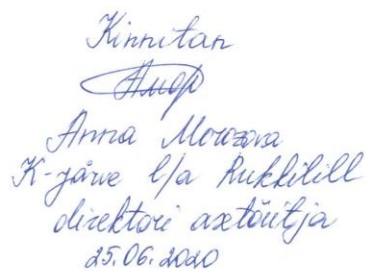 Kinnitan
Anna Morozova
K-järve l/a Rukkilill
direktori asetäitja
25.06.2020